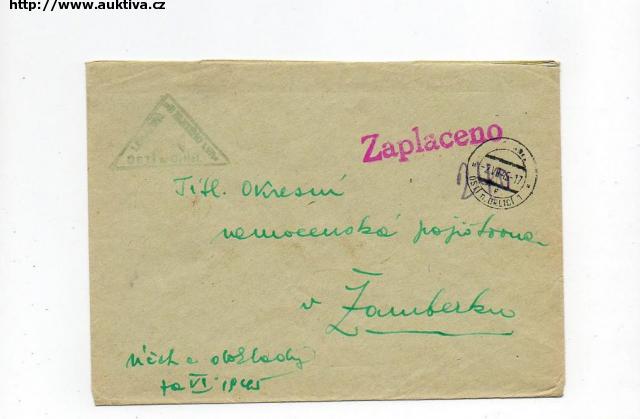 http://www.auktiva.cz
Zaplaceno
-3.VII.45-17
ÚSTÍ n. ORLICÍ 1
Titl. Okresní
nemocenská pojišťovna
v Žamberku
Účet a doklady
za VI 1945